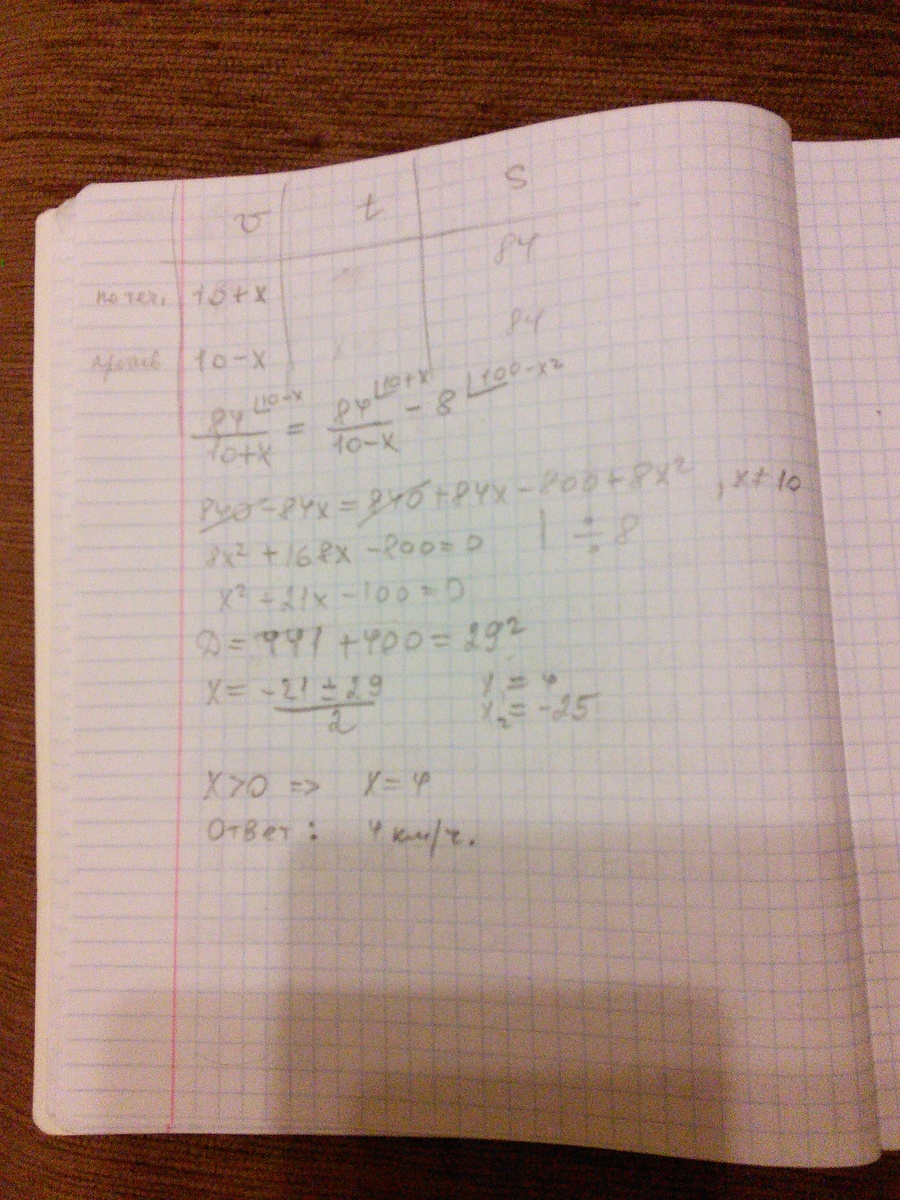 v t S
по теч. 10+x 84
против 10-x 84
84⌊10-x / 10+x = 84⌊10+x / 10-x - 8⌊100-x²
840-84x=840+84x-800+8x², x≠10
8x²+168x-800=0 | ÷8
x²+21x-100=0
D=441+400=29²
x= -21±29 / 2 x₁=4
x₂=-25
x>0 => x=4
Ответ: 4 км/ч.